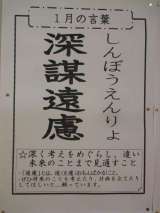 1月の言葉
しんぼうえんりょ
深謀遠慮
☆深く考えをめぐらし、遠い
未来のことまで見通すこと